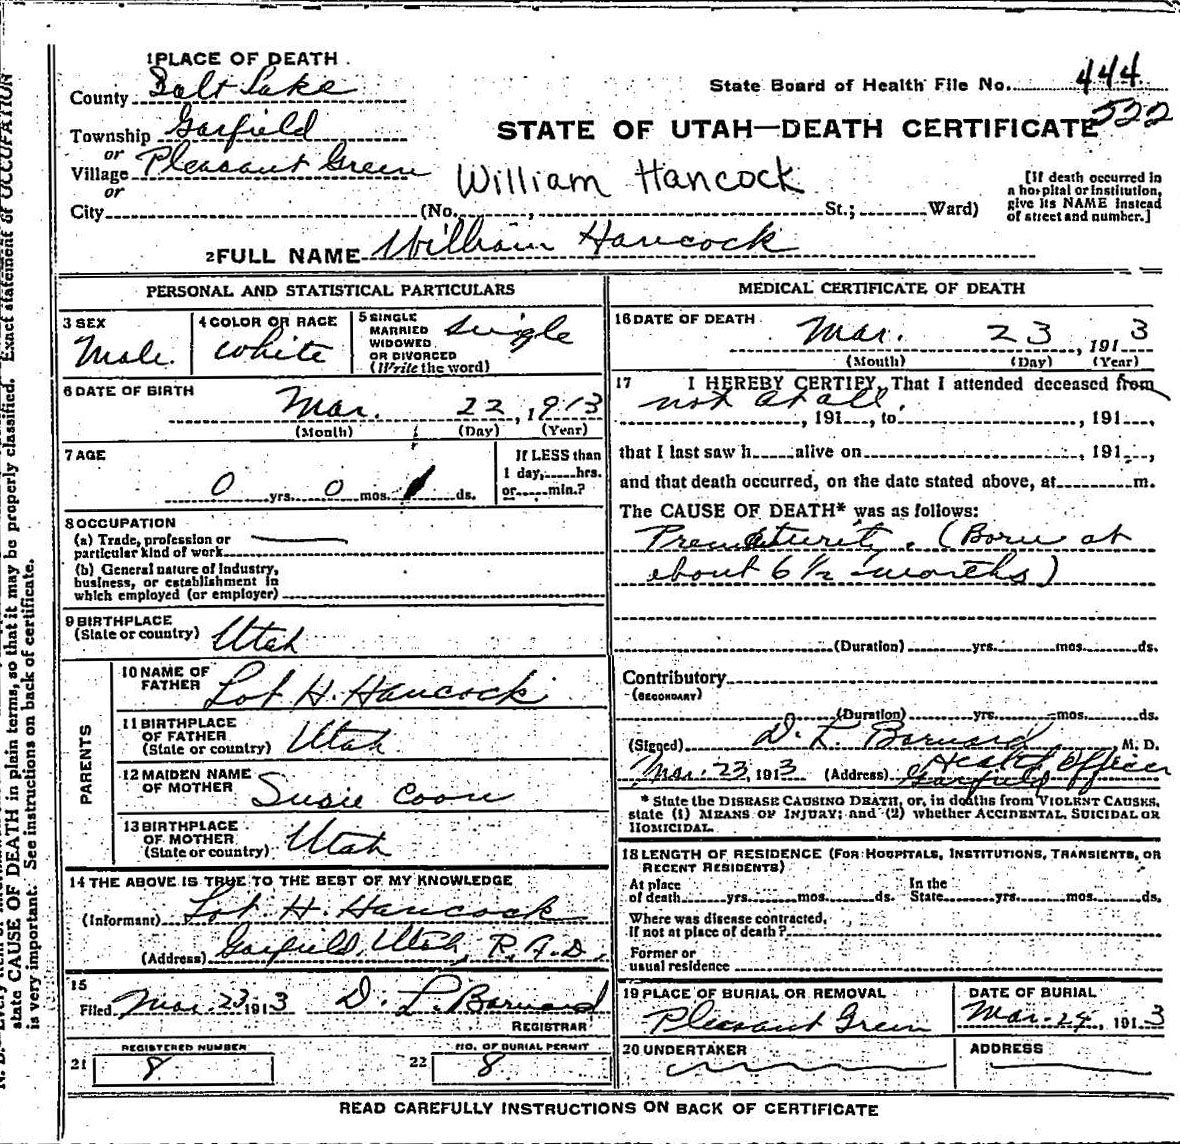 1PLACE OF DEATH
County Salt Lake
State Board of Health File No. 444
522
Township Garfield
STATE OF UTAH—DEATH CERTIFICATE
or
Village Pleasant Green
or
William Hancock
City (No. , St.; Ward)
[If death occurred in
a hospital or institution,
give its NAME instead
of street and number.]
2FULL NAME William Hancock
PERSONAL AND STATISTICAL PARTICULARS
3 SEX
Male.
4 COLOR OR RACE
White
5 SINGLE
MARRIED
WIDOWED
OR DIVORCED
(Write the word)
Single
6 DATE OF BIRTH
Mar. 22, 1913
(Month) (Day) (Year)
7 AGE
0 yrs. 0 mos. 1 ds.
If LESS than
1 day, hrs.
or min.?
8 OCCUPATION
(a) Trade, profession or
particular kind of work
(b) General nature of industry,
business, or establishment in
which employed (or employer)
9 BIRTHPLACE
(State or country) Utah
PARENTS
10 NAME OF
FATHER Lot H. Hancock
11 BIRTHPLACE
OF FATHER
(State or country) Utah
12 MAIDEN NAME
OF MOTHER Susie Coon
13 BIRTHPLACE
OF MOTHER
(State or country) Utah
14 THE ABOVE IS TRUE TO THE BEST OF MY KNOWLEDGE
(Informant) Lot H. Hancock
(Address) Garfield, Utah, R.F.D.
15
Filed Mar. 23 1913 D. L. Barnard
REGISTRAR
REGISTERED NUMBER
21 8
NO. OF BURIAL PERMIT
22 8
MEDICAL CERTIFICATE OF DEATH
16 DATE OF DEATH
Mar. 23, 1913
(Month) (Day) (Year)
17 I HEREBY CERTIFY, That I attended deceased from
not at all.
, 191 , to , 191 ,
that I last saw h alive on , 191 ,
and that death occurred, on the date stated above, at m.
The CAUSE OF DEATH* was as follows:
Prematurity. (Born at
about 6 1/2 months)
(Duration) yrs. mos. ds.
Contributory
(SECONDARY)
(Duration) yrs. mos. ds.
(Signed) D. L. Barnard M. D.
Health Officer
Mar. 23, 1913 (Address) Garfield
* State the DISEASE CAUSING DEATH, or, in deaths from VIOLENT CAUSES,
state (1) MEANS OF INJURY; and (2) whether ACCIDENTAL, SUICIDAL OR
HOMICIDAL.
18 LENGTH OF RESIDENCE (FOR HOSPITALS, INSTITUTIONS, TRANSIENTS, OR
RECENT RESIDENTS)
At place
of death yrs. mos. ds.
In the
State yrs. mos. ds.
Where was disease contracted,
If not at place of death?
Former or
usual residence
19 PLACE OF BURIAL OR REMOVAL
Pleasant Green
DATE OF BURIAL
Mar. 24, 1913
20 UNDERTAKER
ADDRESS
READ CAREFULLY INSTRUCTIONS ON BACK OF CERTIFICATE
state CAUSE OF DEATH in plain terms, so that it may be properly classified. Exact statement of OCCUPATION
is very important. See instructions on back of certificate.